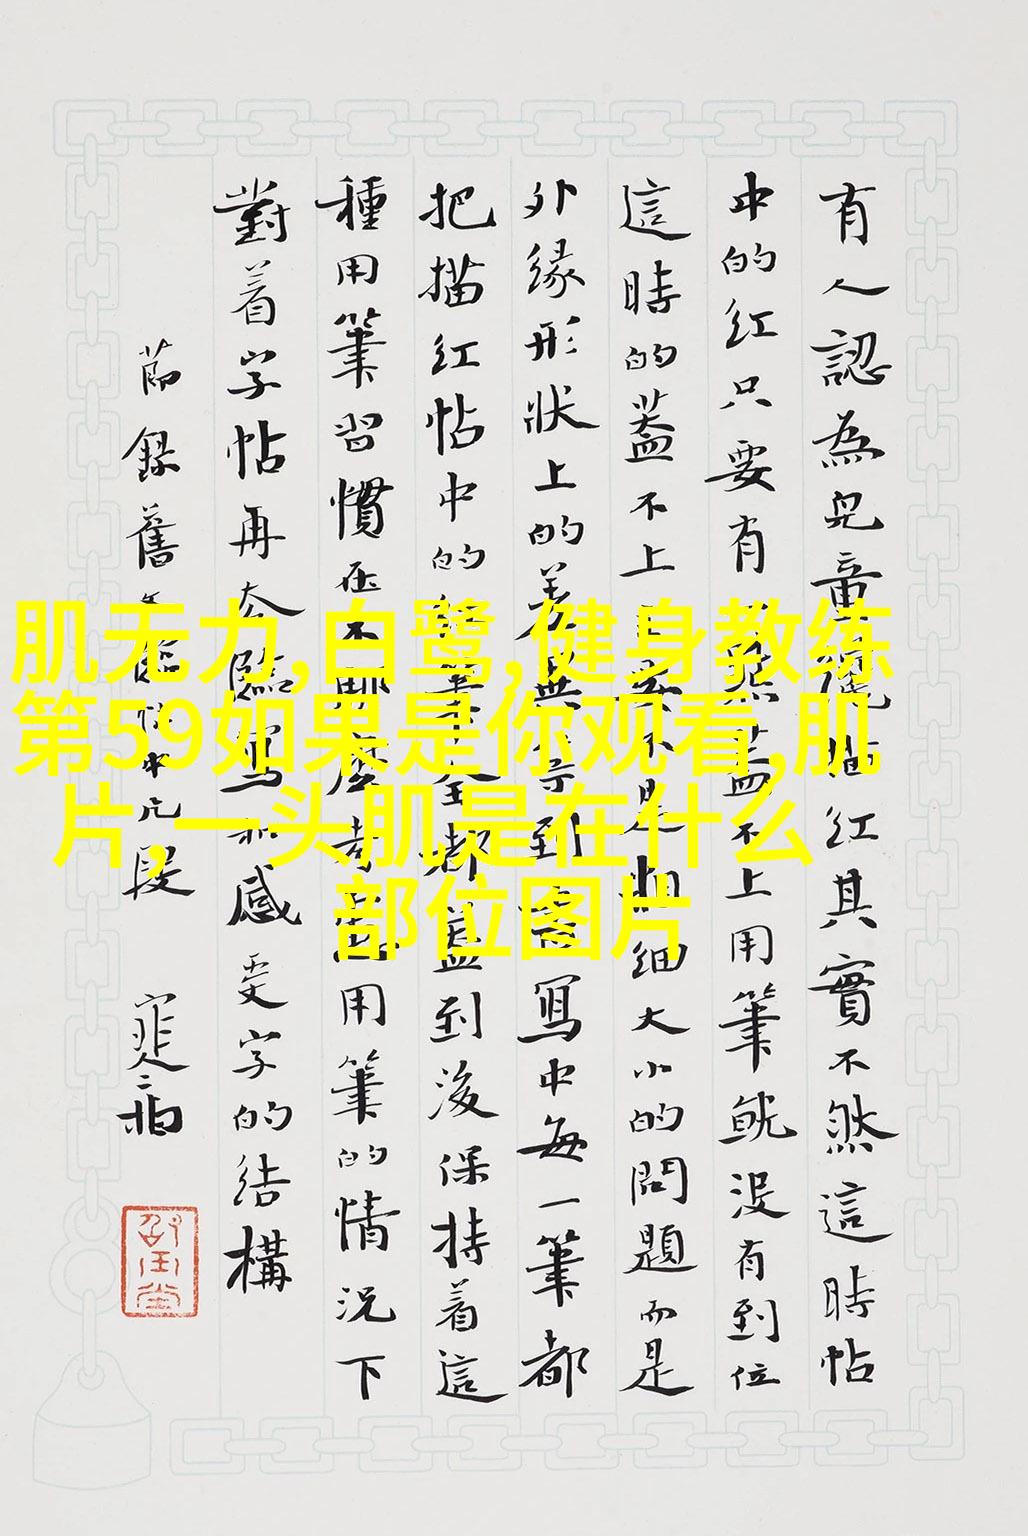 有人認為兒童紅其實不然這時帖
中的紅只要有點蓋不上用筆就沒有到位
這時的蓋不上不是粗細大小的問題而是
外緣形狀上的差異等到書寫中每一筆都
把描紅帖中的紅筆全都蓋到後保持着這
種用筆習慣在不麼考慮用筆的情況下
對着字帖再去臨寫和感受字的結構
節錄舊中片段
肌无力,白鹭,健身教练
第59如果是你观看,肌
片,一头肌是在什么
部位图片